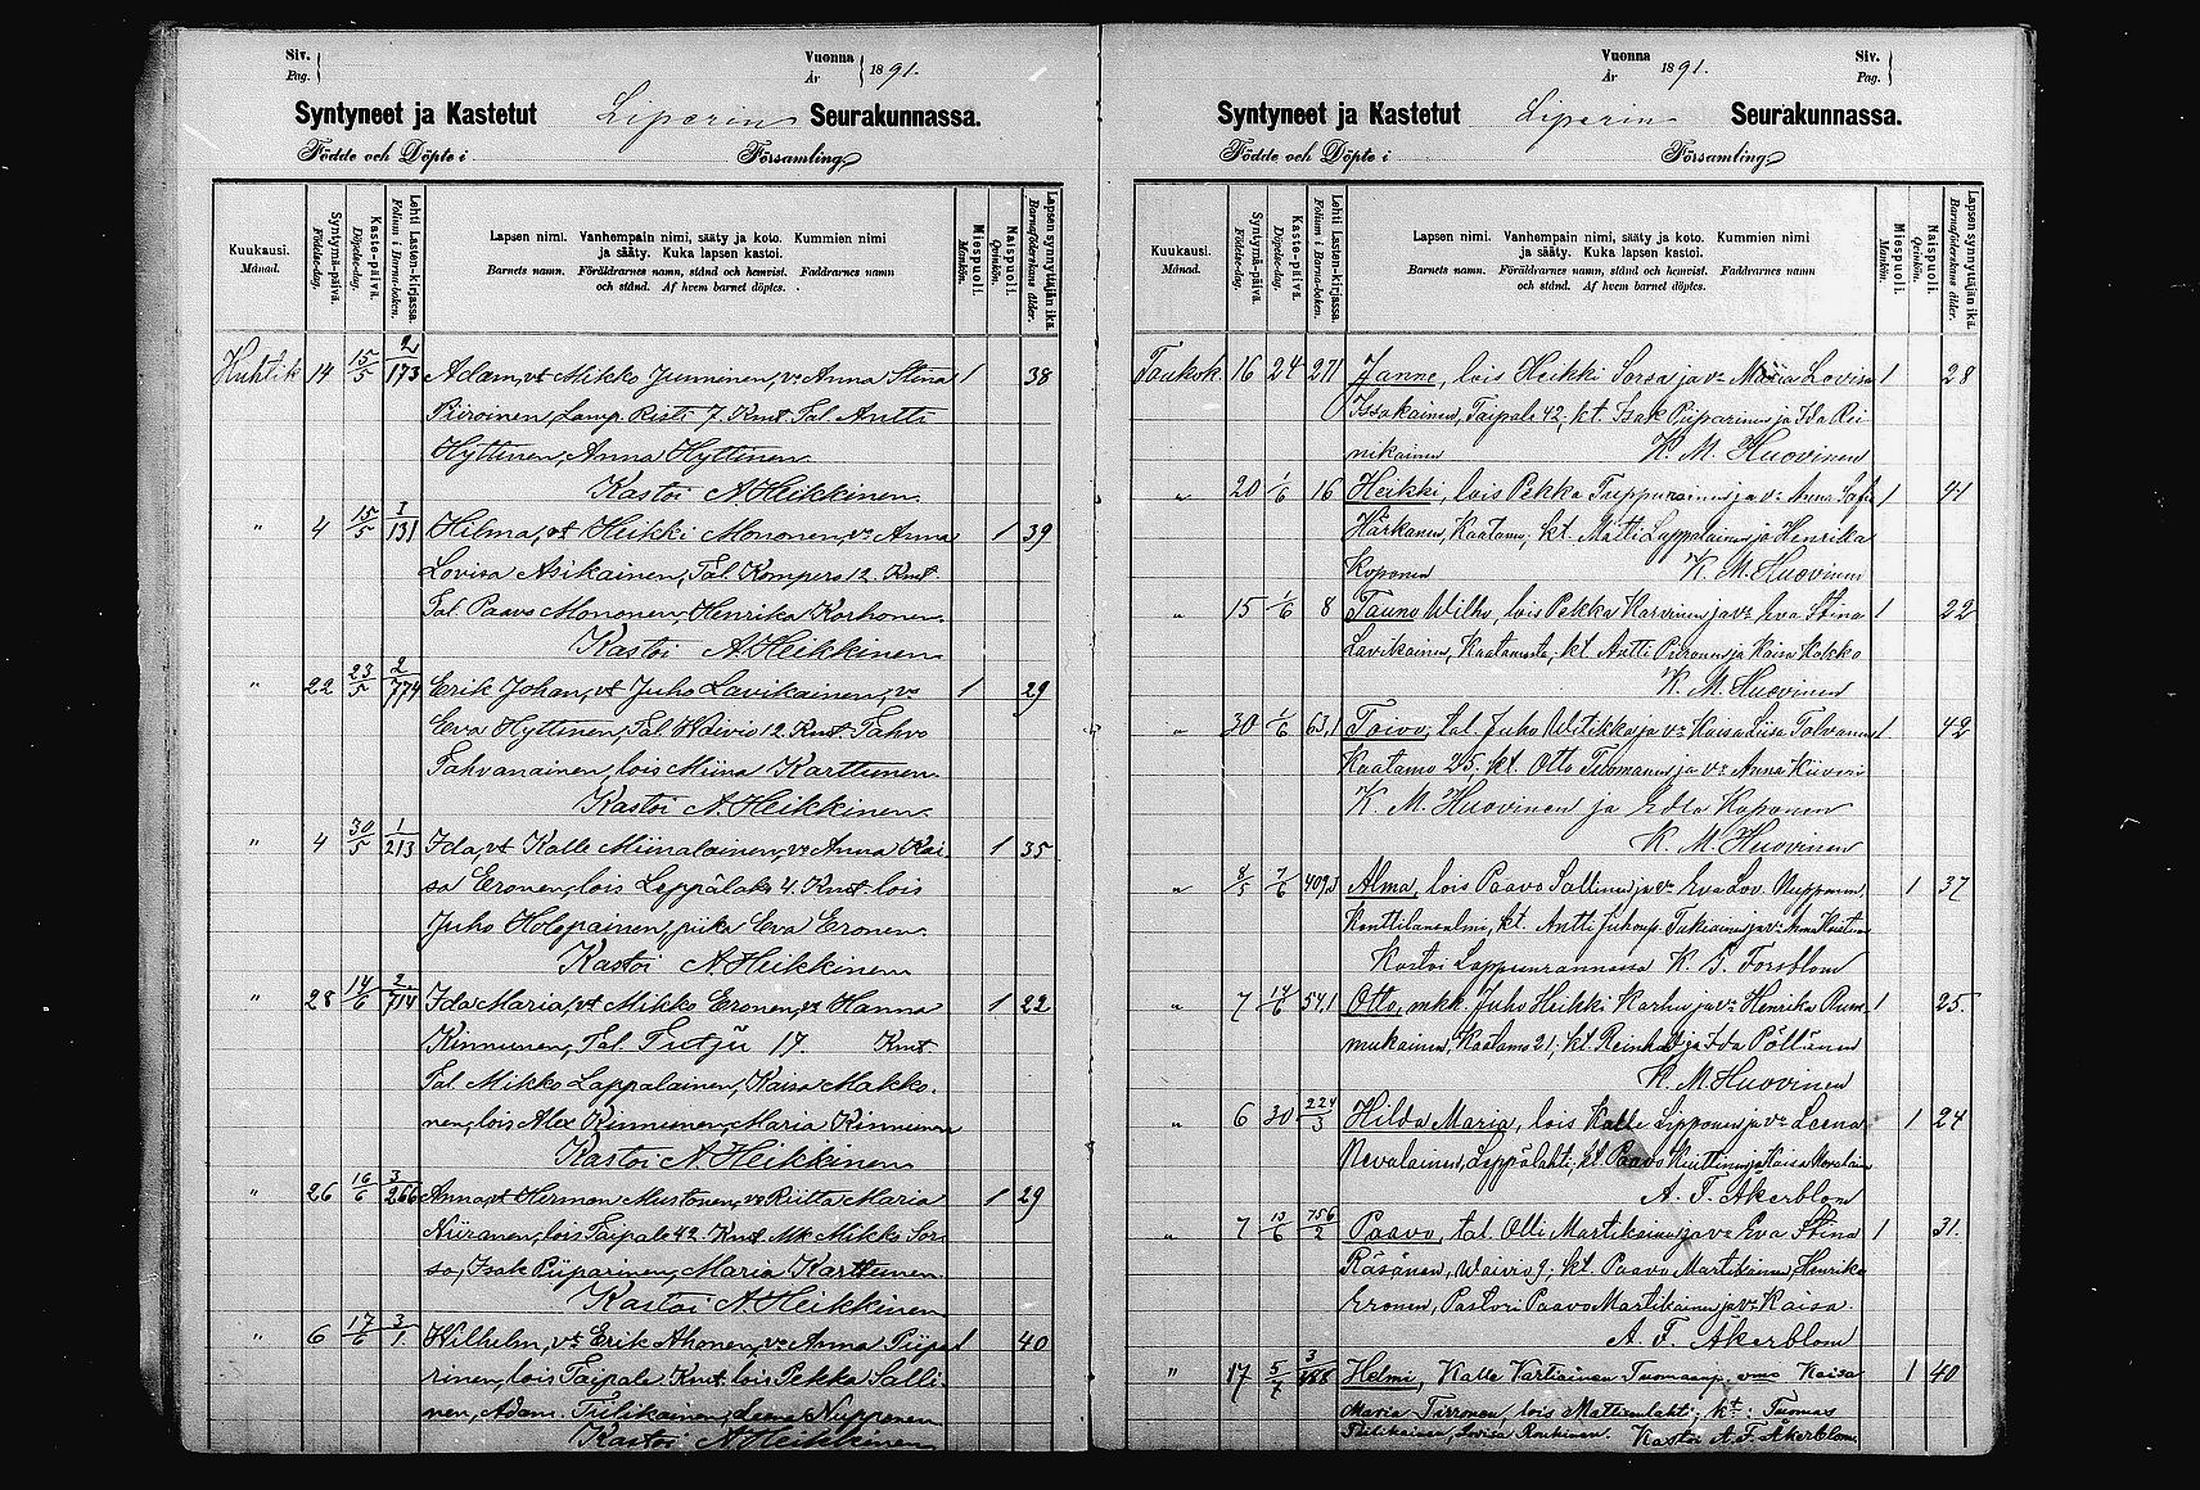 Siv.
Pag.
Vuonna
År
1891.
Syntyneet ja Kastetut Liperin Seurakunnassa.
Födde och Döpte i Församling
Kuukausi.
Månad.
Syntymä-päivä.
Födelse-dag.
Kaste-päivä.
Döpelse-dag.
Lehti Lasten-kirjassa.
Folium i Barna-boken.
Lapsen nimi. Vanhempain nimi, sääty ja koto. Kummien nimi
ja sääty. Kuka lapsen kastoi.
Barnets namn. Föräldrarnes namn, stånd och hemvist. Faddrarnes namn
och stånd. Af hvem barnet döptes.
Miespuoli.
Mankön.
Naispuoli.
Qvinkön.
Lapsen synnyttäjän ikä.
Barnaföderskans ålder.
Huhtik 14 15/5 2/173 Adam, vt Mikko Junninen, vo Anna Stina 1 38
Piiroinen, Lamp. Risti 7. Kmt. Tal. Antti
Hyttinen, Anna Hyttinen
Kastoi A. Heikkinen.
" 4 15/5 I/131 Hilma, vt Heikki Mononen, vo Anna 1 39
Lovisa Asikainen, Tal. Kompero 12. Kmt.
Tal. Paavo Mononen, Henrika Korhonen.
Kastoi A. Heikkinen
" 22 23/5 2/774 Erik Johan, vt Juho Lavikainen, vo 1 29
Eva Hyttinen, Tal. Waivio 12. Kmt. Tahvo
Tahvanainen, lois Miina Karttunen.
Kastoi A. Heikkinen.
" 4 30/5 1/213 Ida, vt Kalle Miinalainen, vo Anna Kai 1 35
sa Eronen, lois Leppälaks 4. Kmt. lois
Juho Holopainen, piika Eva Eronen.
Kastoi A. Heikkinen
" 28 14/6 2/714 Ida Maria, vt Mikko Eronen, vo Hanna 1 22
Kinnunen, Tal. Tutju 17. Kmt.
Tal. Mikko Lappalainen, Kaisa Makko.
nen, lois Alex Kinnunen, Maria Kinnunen
Kastoi A. Heikkinen
" 26 16/6 3/266 Anna, vt Herman Mustonen, vo Riitta Maria 1 29
Niiranen, lois Taipale 42. Kmt. Mk Mikko Sor
sa, Isak Piiparinen, Maria Karttunen.
Kastoi A. Heikkinen
" 6 17/6 3/1. Wilhelm, vt Erik Ahonen, vo Anna Piipa 1 40
rinen, lois Taipale. Kmt. lois Pekka Salli.
nen, Adam Tiilikainen, Leena Nupponen.
Kastoi A. Heikkinen
Vuonna
År
1891.
Siv.
Pag.
Syntyneet ja Kastetut Liperin Seurakunnassa.
Födde och Döpte i Församling
Kuukausi.
Månad.
Syntymä-päivä.
Födelse-dag.
Kaste-päivä.
Döpelse-dag.
Lehti Lasten-kirjassa.
Folium i Barna-boken.
Lapsen nimi. Vanhempain nimi, sääty ja koto. Kummien nimi
ja sääty. Kuka lapsen kastoi.
Barnets namn. Föräldrarnes namn, stånd och hemvist. Faddrarnes namn
och stånd. Af hvem barnet döptes.
Miespuoli.
Mankön.
Naispuoli.
Qvinkön.
Lapsen synnyttäjän ikä.
Barnaföderskans ålder.
Toukok. 16 24 271 Janne, lois Heikki Sorsa ja vo Maria Lovisa 1 28
Issakainen, Taipale 42; kt. Isak Piiparinen ja Ida Rei
nikainen K. M. Huovinen
" 20 1/6 16 Heikki, lois Pekka Turppurainen ja vo Anna Sofia 1 41
Härkänen, Kaatamo; kt. Matti Lappalainen ja Henrika
Koponen K. M. Huovinen
" 15 1/6 8 Tauno Wilho, lois Pekka Karvinen ja vo Eva Stina 1 22
Lavikainen, Kaatamosta; kt. Antti Piironen ja Kaisa Kokko
K. M. Huovinen
" 30 1/6 63,1 Toivo, tal. Juho Witikka ja vo Kaisa Liisa Tolvanen 1. 42
Kaatamo 25. kt. Otto Tuomanen ja vo Anna Kiiveri
K. M. Huovinen ja Edla Koponen
K. M. Huovinen
" 8/5 7/6 409,3 Alma, lois Paavo Sallinen ja vo Eva Lov. Nupponen, 1 37
Konttilansalmi, kt. Antti Juhonp. Tukiainen ja vo Anna
Kastoi Lappeenrannassa K. G. Forsblom
" 7 14/6 54,1 Otto, mkk. Juho Heikki Karhu ja vo Henrika Rum 1 25.
mukainen, Kaatamo 21; kt. Reinhold ja Ida Pöllänen
K. M. Huovinen
" 6 30 224/3 Hilda Maria, lois Kalle Lipponen ja vo Leena 1 24
Nevalainen, Leppälahti; kt. Paavo Kinttinen ja Kaisa Nevalain
A. F. Åkerblom
" 7 13/6 756/2 Paavo, tal. Olli Martikainen ja vo Eva Stina 1 31.
Räsänen, Waivio 9; kt. Paavo Martikainen, Henrika
Eronen, Pastori Paavo Martikainen ja vo Kaisa.
A. F. Åkerblom
" 17 5/7 3/188 Helmi, Kalle Vartiainen Tuomaanp. vmo Kaisa 1 40
Maria Tirronen, lois Mattisenlahti; kt: Tuomas
Tiilikainen, Lovisa Ronkinen. Kastoi A. F. Åkerblom.